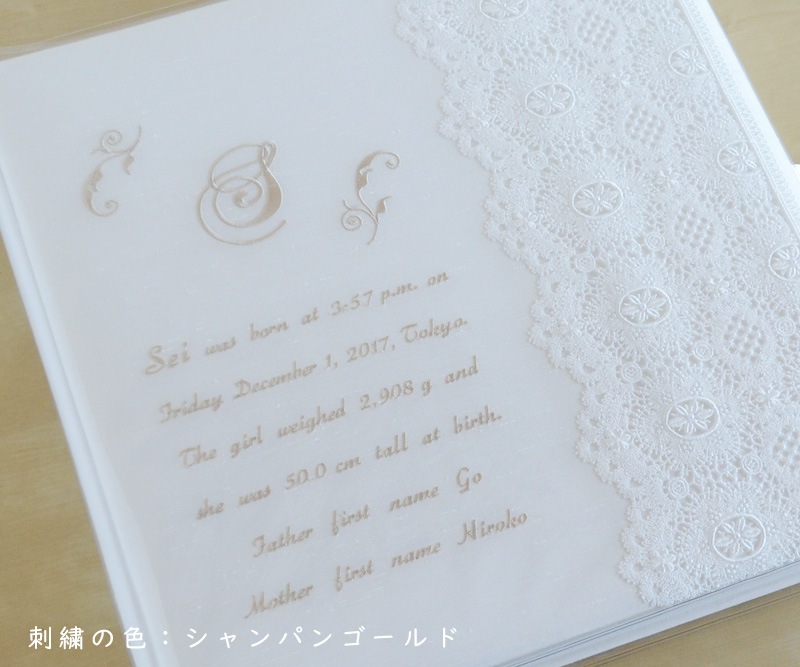 S
Sei was born at 3:57 p.m. on
Friday December 1, 2017, Tokyo.
The girl weighed 2,908 g and
she was 50.0 cm tall at birth.
Father first name Go
Mother first name Hiroko
刺繍の色：シャンパンゴールド